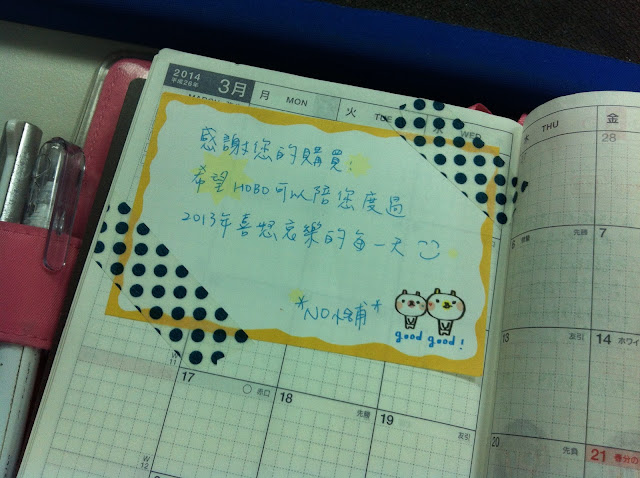 2014
平成26年
3月
月 MON
火 TUE
水 WED
木 THU
金
感謝您的購買!
希望HOBO可以陪您度過
2013年喜怒哀樂的每一天
*NO小舖*
good good!
28
6 先勝
7
13 友引
14 ホワイ
W 11
17 赤口
18 先勝
19 友引
20 先負
21 春分の
W 12